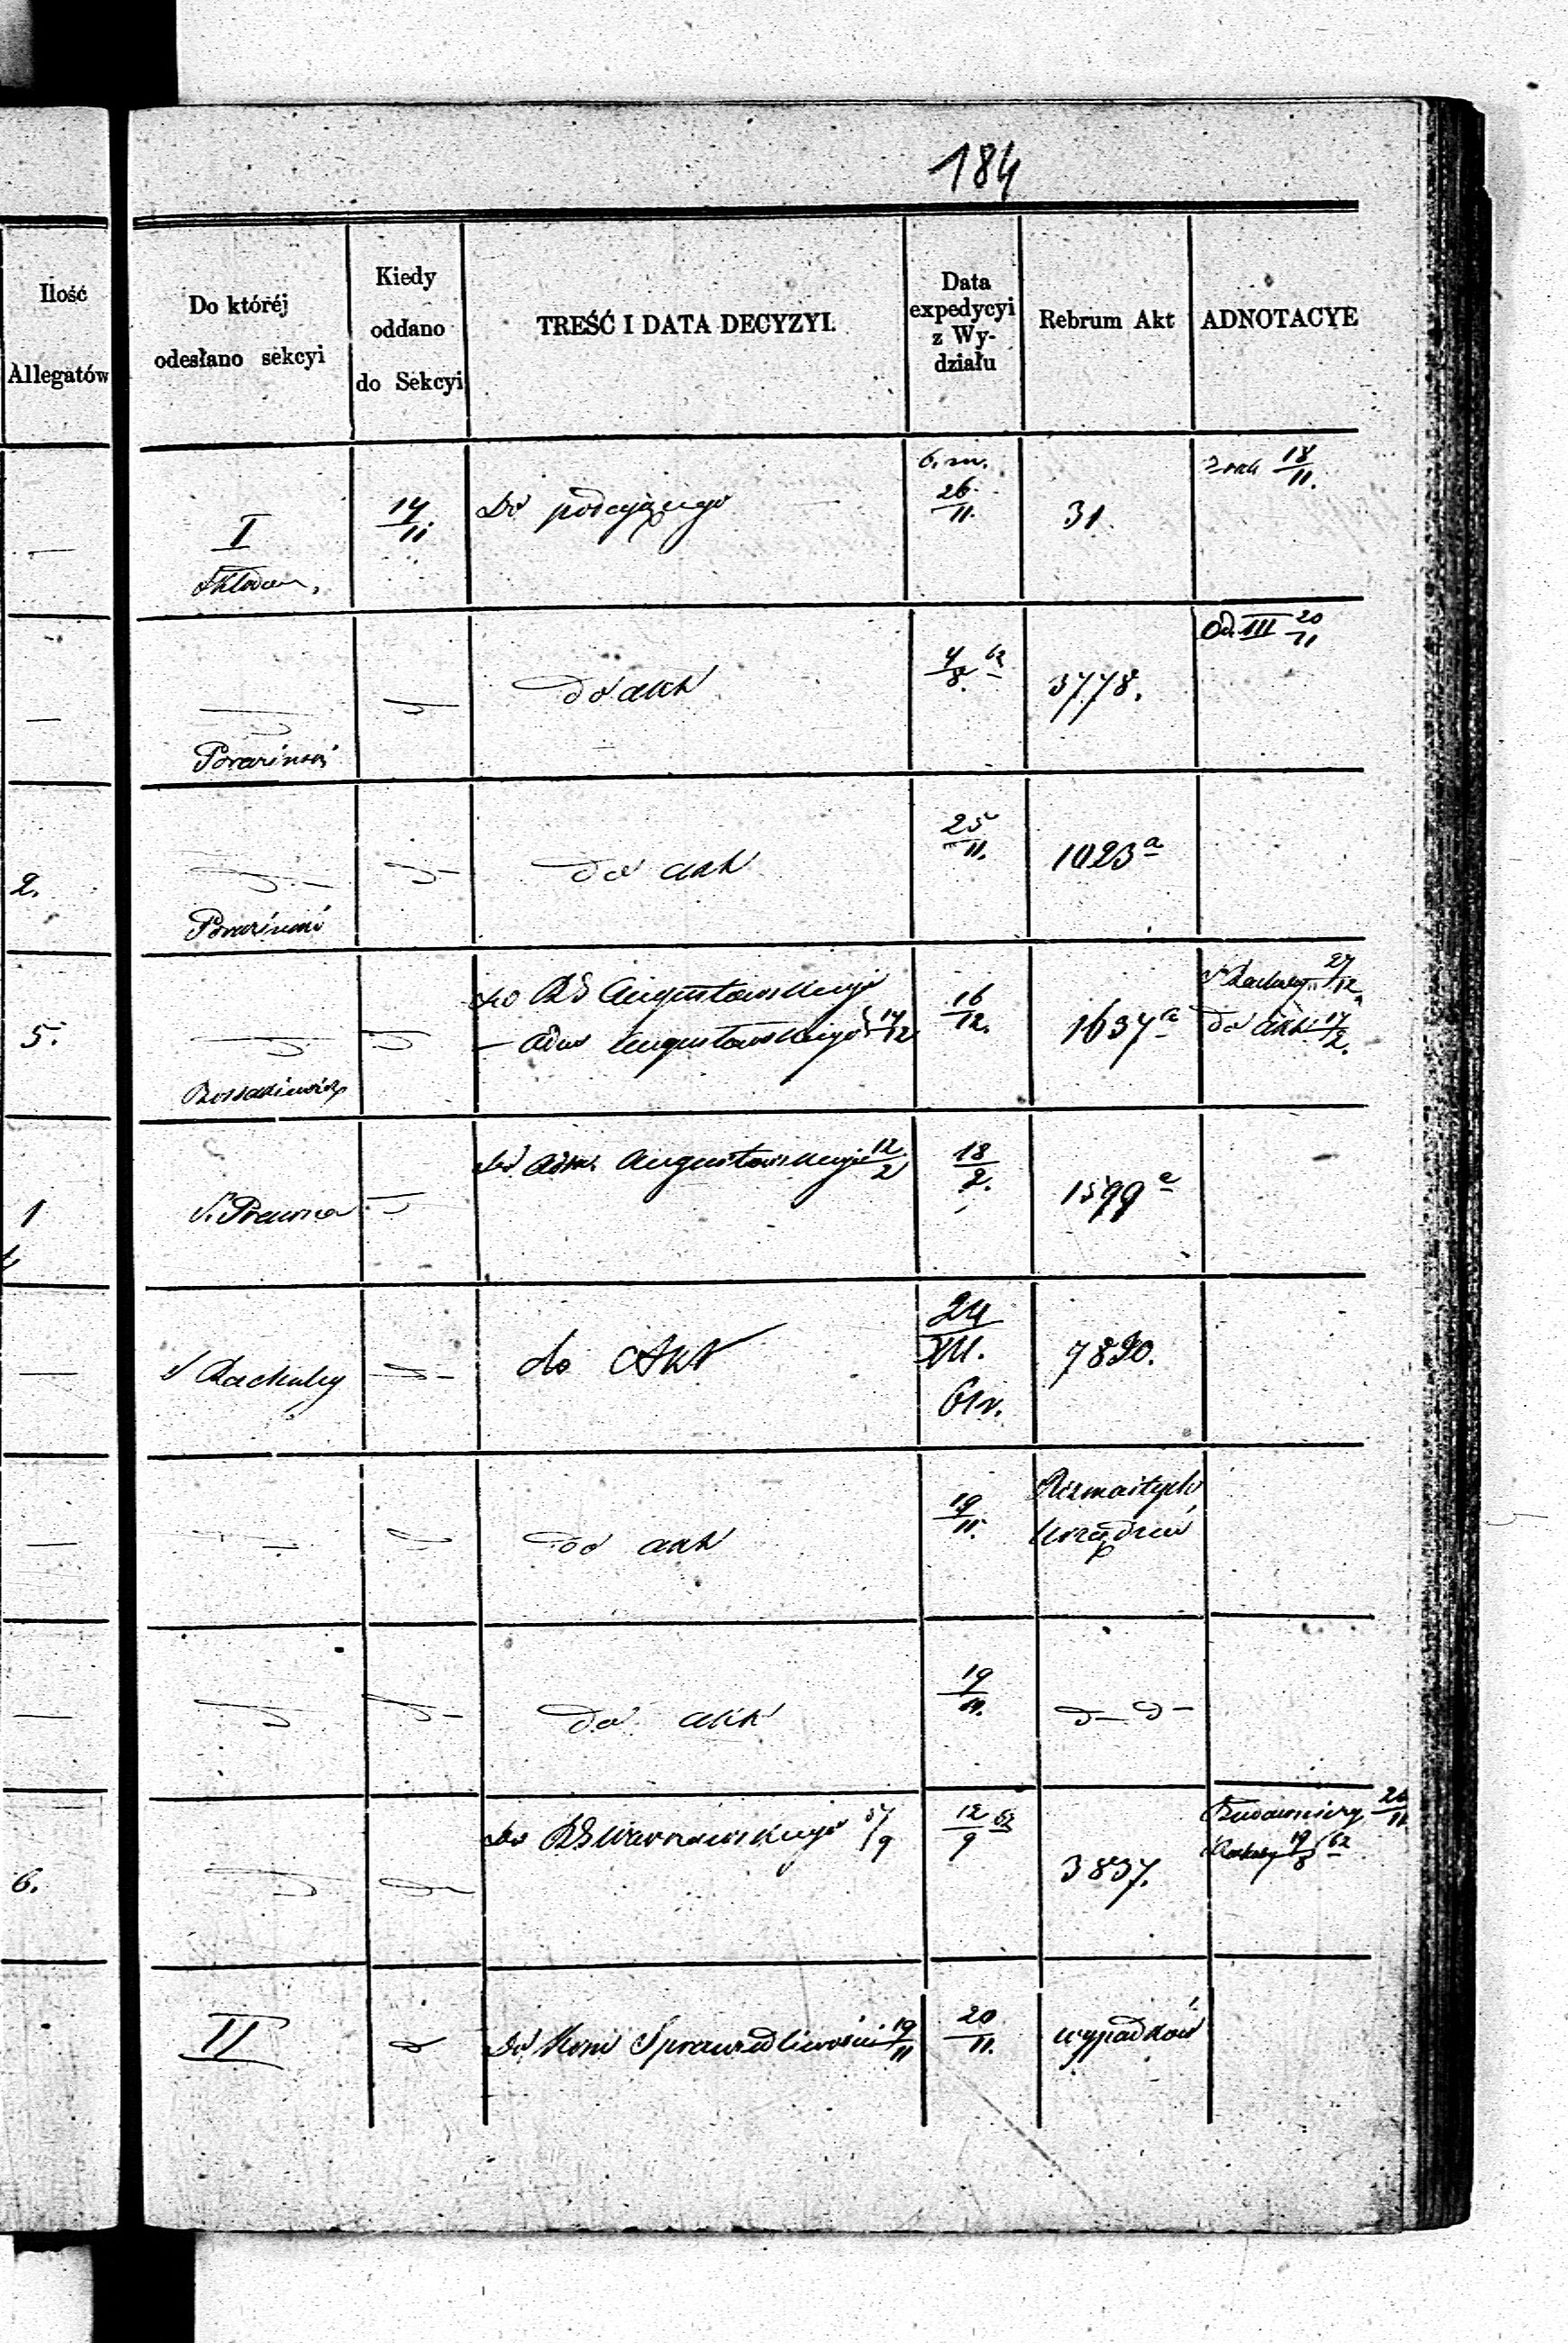 184
Ilość
Allegatów
Do któréj
odesłano sekcyi
Kiedy
oddano
do Sekcyi
TREŚĆ I DATA DECYZYI.
Data
expedycyi
z Wy-
działu
Rebrum Akt
ADNOTACYE
—
I
14/11.
Do
26/11.
31.
18/11.
—
do akt
4/8. 62
3778.
Od III 20/11
2.
do akt
25/11.
1023a
5.
Do RG Augustowskiego
— Adm Augustowskiego 14/12
16/12.
1637a
27/12
do akt 17/2.
1
S. Prawna
Do Adm. Augustowskiego 12/2
18/2.
1599a
—
S Rachuby
do Akt
24/XII.
61 r.
7890.
—
do akt
19/11.
Rozmaitych
Urzędów
—
do akt
19/11.
d— d—
6.
Do RG Warszawskiego 5/9
12/9 62
3837.
Rachuby 19/8 62
II
Do Kom Sprawiedliwości 19/11
20/11.
wypadków